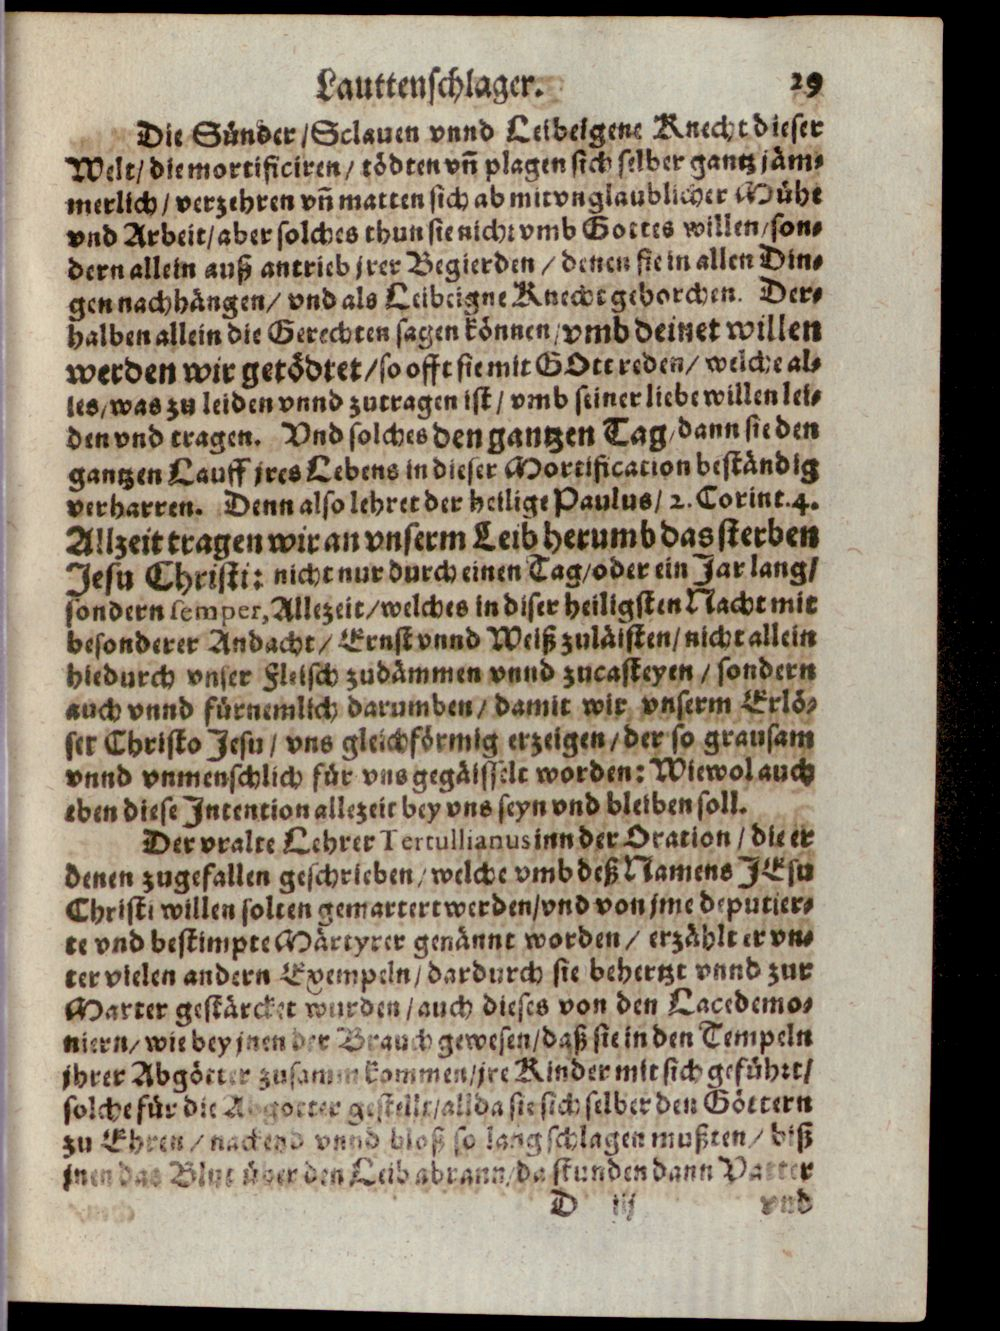 Lauttenschlager. 29
Die Sünder / Sclauen vnnd Leibeigene Knecht dieser
Welt / die mortificiren / tödten vñ plagen sich selber gantz jäm-
merlich / verzehren vñ matten sich ab mit vnglaublicher Mühe
vnd Arbeit / aber solches thun sie nicht vmb Gottes willen / son-
dern allein auß antrieb jrer Begierden / denen sie in allen Din-
gen nachhängen / vnd als Leibeigne Knecht gehorchen. Der-
halben allein die Gerechten sagen können / vmb deinet willen
werden wir getödtet / so offt sie mit GOtt reden / welche al-
les / was zu leiden vnnd zutragen ist / vmb seiner liebe willen lei-
den vnd tragen. Vnd solches den gantzen Tag / dann sie den
gantzen Lauff jres Lebens in dieser Mortification beständig
verharren. Denn also lehret der heilige Paulus / 2. Corint. 4.
Allzeit tragen wir an vnserm Leib herumb das sterben
Jesu Christi: nicht nur durch einen Tag / oder ein Jar lang /
sondern semper, Allezeit / welches in diser heiligsten Nacht mit
besonderer Andacht / Ernst vnnd Weiß zuläisten / nicht allein
hiedurch vnser Fleisch zudämmen vnnd zucasteyen / sondern
auch vnnd fürnemlich darumben / damit wir vnserm Erlö-
ser Christo Jesu / vns gleichförmig erzeigen / der so grausam
vnnd vnmenschlich für vns gegäisselt worden: Wiewol auch
eben diese Intention allezeit bey vns seyn vnd bleiben soll.
Der vralte Lehrer Tertullianus inn der Oration / die er
denen zugefallen geschrieben / welche vmb deß Namens JEsu
Christi willen solten gemartert werden / vnd von jme deputier-
te vnd bestimpte Märtyrer genännt worden / erzählt er vn-
ter vielen andern Exempeln / dardurch sie behertzt vnnd zur
Marter gestärcket wurden / auch dieses von den Lacedemo-
niern / wie bey jnen der Brauch gewesen / daß sie in den Tempeln
jhrer Abgötter zusamm kommen / jre Kinder mit sich geführt /
solche für die Abgötter gestellt / allda sie sich selber den Göttern
zu Ehren / nackend vnnd bloß so lang schlagen mußten / biß
jnen das Blut über den Leib abrann / da stunden dann Vatter
D iij vnd